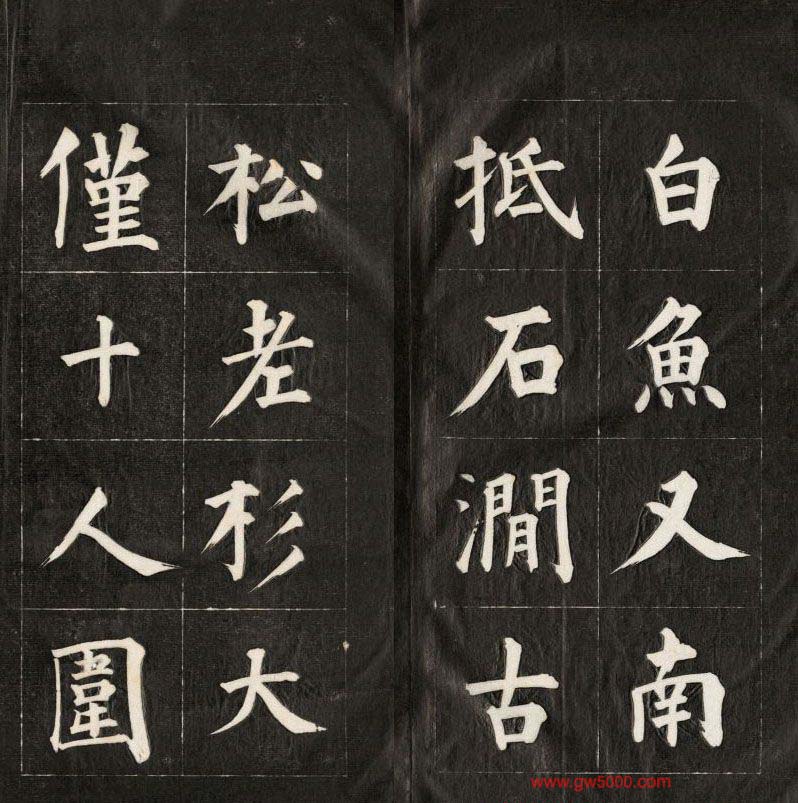 白魚又南
抵石澗古
松老杉大
僅十人圍
www.gw5000.com